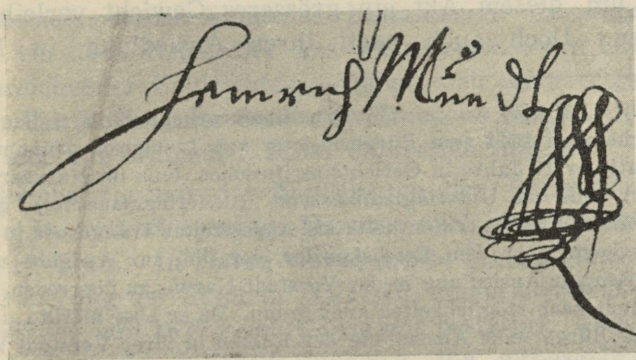 Heinrich Mundt